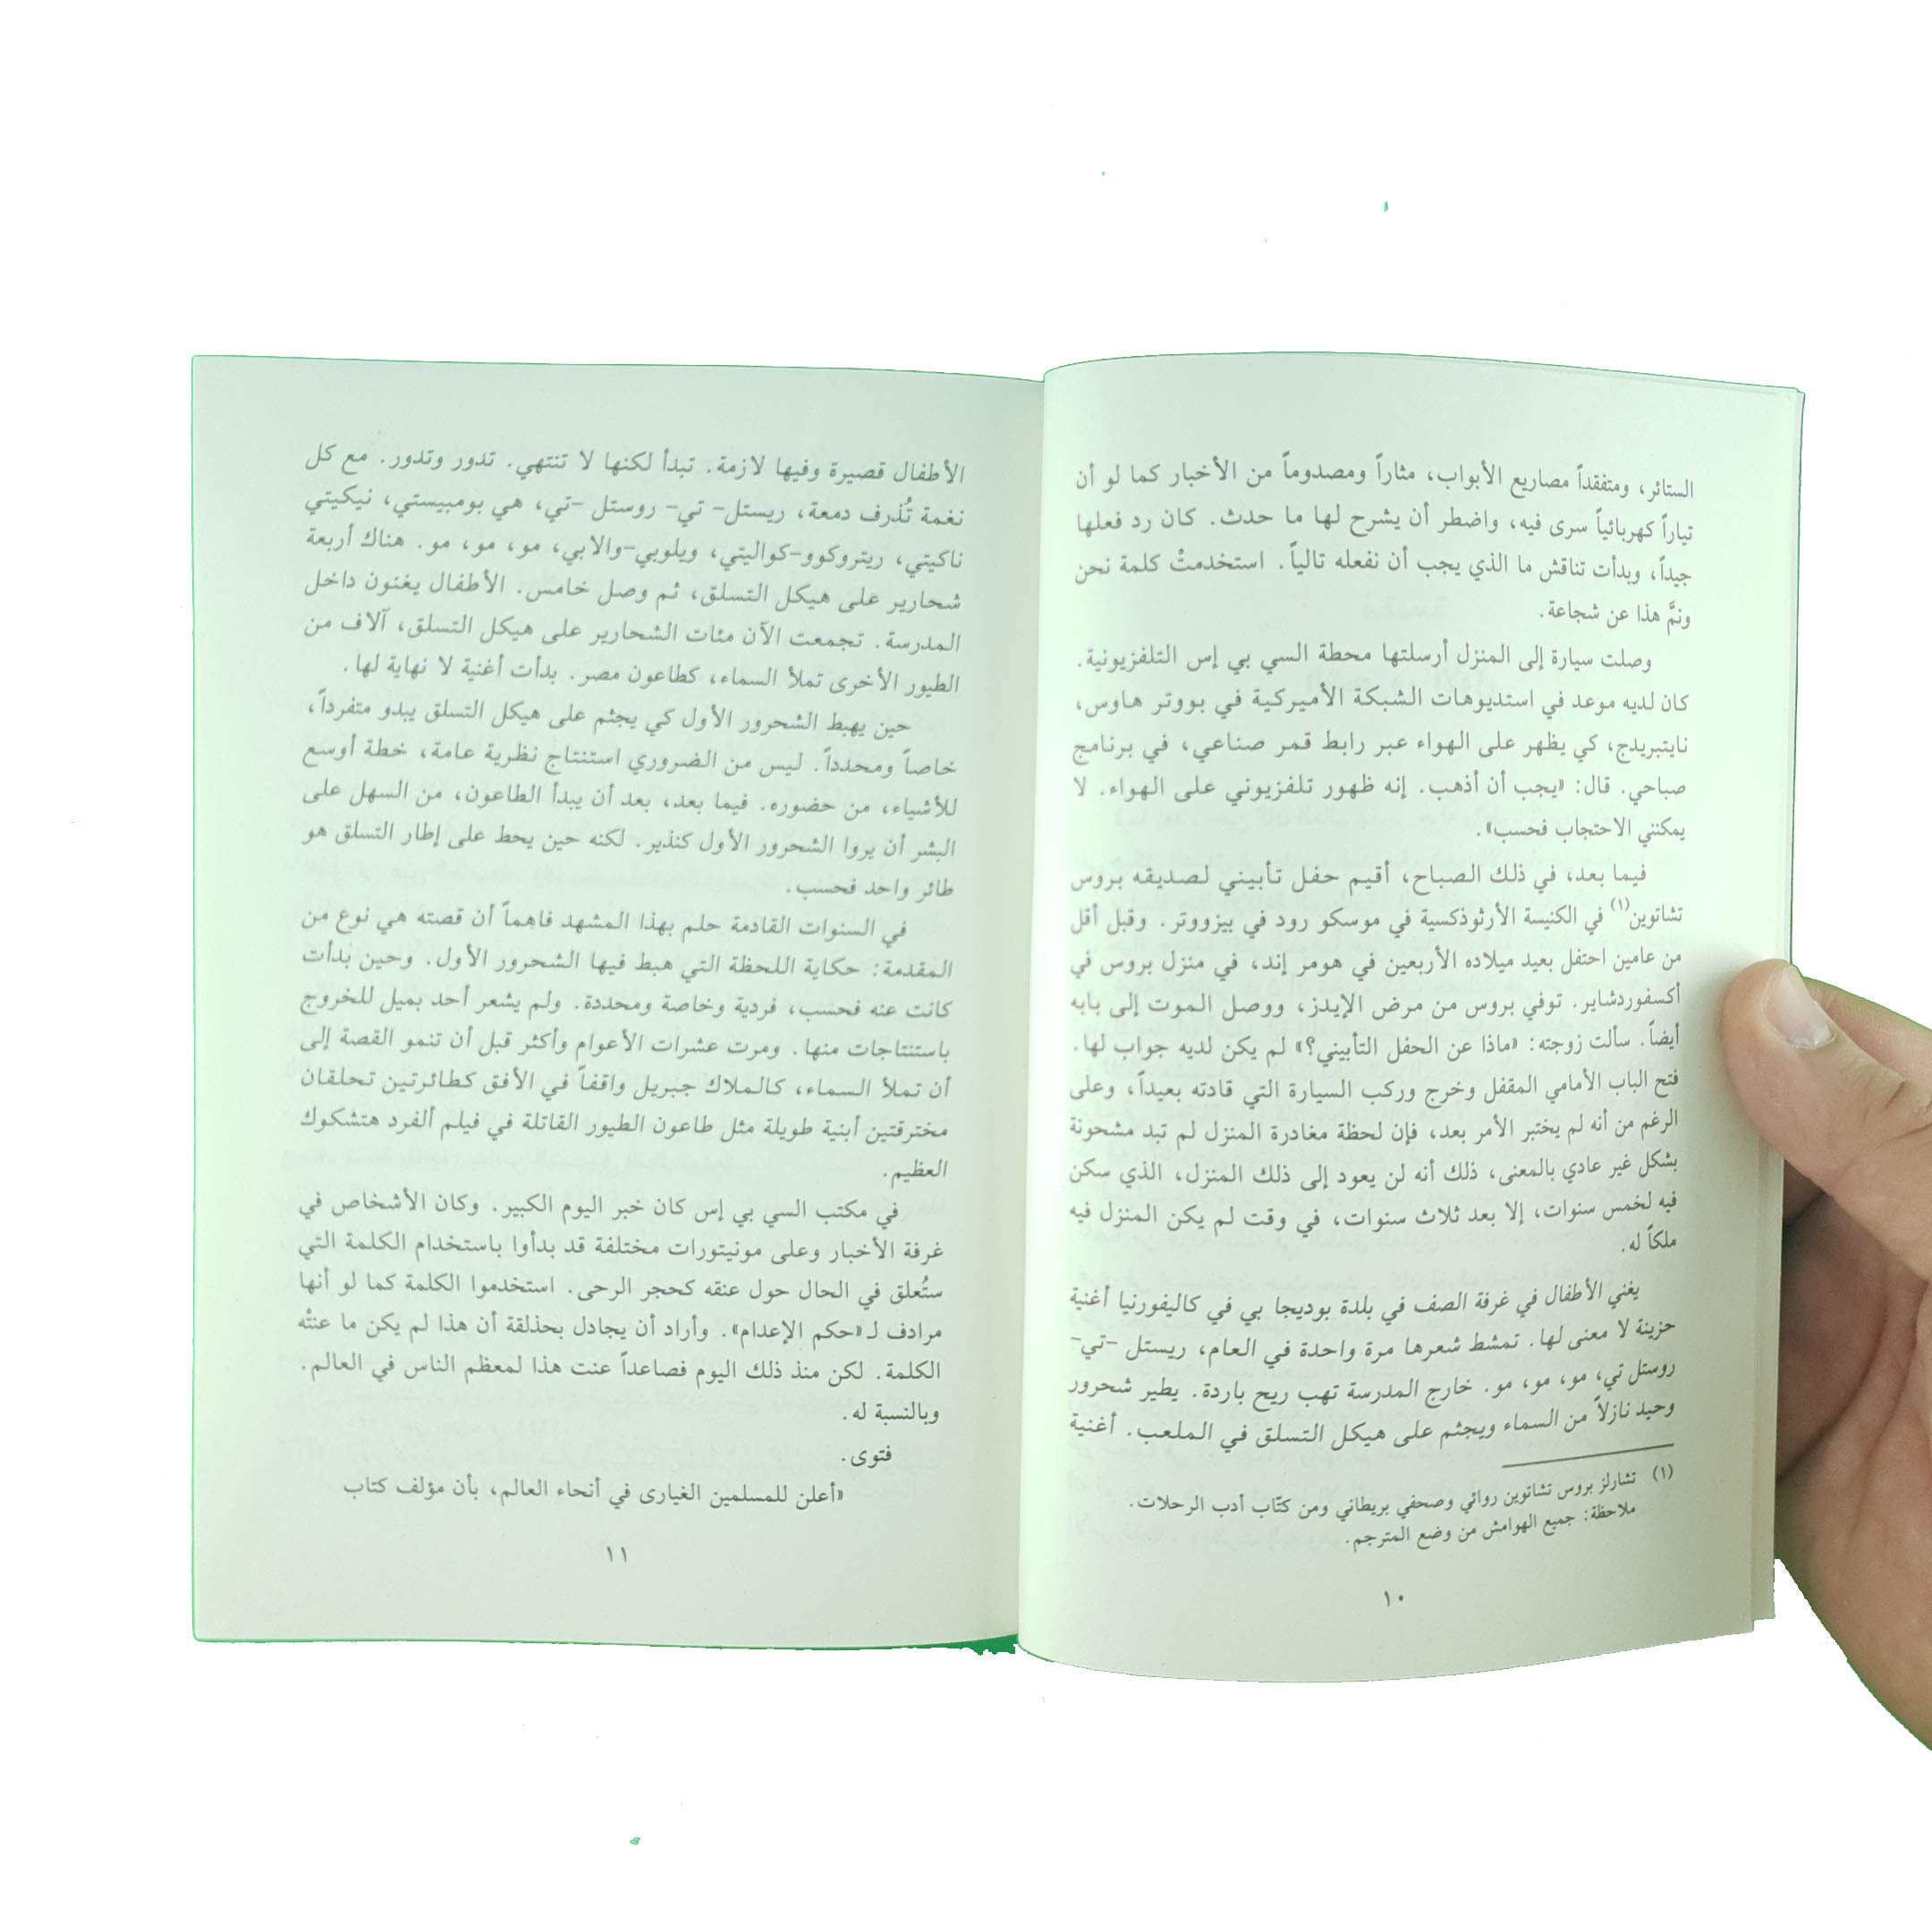 الستائر، ومتفقداً مصاريع الأبواب، مثاراً ومصدوماً من الأخبار كما لو أن
تياراً كهربائياً سرى فيه، واضطر أن يشرح لها ما حدث. كان رد فعلها
جيداً، وبدأت تناقش ما الذي يجب أن نفعله تالياً. استخدمتْ كلمة نحن
ونمَّ هذا عن شجاعة.
وصلت سيارة إلى المنزل أرسلتها محطة السي بي إس التلفزيونية.
كان لديه موعد في استديوهات الشبكة الأميركية في بووتر هاوس،
نايتبريدج، كي يظهر على الهواء عبر رابط قمر صناعي، في برنامج
صباحي. قال: «يجب أن أذهب. إنه ظهور تلفزيوني على الهواء. لا
يمكنني الاحتجاب فحسب».
فيما بعد، في ذلك الصباح، أقيم حفل تأبيني لصديقه بروس
تشاتوين(١) في الكنيسة الأرثوذكسية في موسكو رود في بيزووتر. وقبل أقل
من عامين احتفل بعيد ميلاده الأربعين في هومر إند، في منزل بروس في
أكسفوردشاير. توفي بروس من مرض الإيدز، ووصل الموت إلى بابه
أيضاً. سألت زوجته: «ماذا عن الحفل التأبيني؟» لم يكن لديه جواب لها.
فتح الباب الأمامي المقفل وخرج وركب السيارة التي قادته بعيداً، وعلى
الرغم من أنه لم يختبر الأمر بعد، فإن لحظة مغادرة المنزل لم تبد مشحونة
بشكل غير عادي بالمعنى، ذلك أنه لن يعود إلى ذلك المنزل، الذي سكن
فيه لخمس سنوات، إلا بعد ثلاث سنوات، في وقت لم يكن المنزل فيه
ملكاً له.
يغني الأطفال في غرفة الصف في بلدة بوديجا بي في كاليفورنيا أغنية
حزينة لا معنى لها. تمشط شعرها مرة واحدة في العام، ريستل -تي-
روستل تي، مو، مو، مو. خارج المدرسة تهب ريح باردة. يطير شحرور
وحيد نازلاً من السماء ويجثم على هيكل التسلق في الملعب. أغنية
(١) تشارلز بروس تشاتوين روائي وصحفي بريطاني ومن كتّاب أدب الرحلات.
ملاحظة: جميع الهوامش من وضع المترجم.
١٠
الأطفال قصيرة وفيها لازمة. تبدأ لكنها لا تنتهي. تدور وتدور. مع كل
نغمة تُذرف دمعة، ريستل- تي- روستل -تي، هي بومبيستي، نيكيتي
ناكيتي، ريتروكوو-كواليتي، ويلوبي-والابي، مو، مو، مو. هناك أربعة
شحارير على هيكل التسلق، ثم وصل خامس. الأطفال يغنون داخل
المدرسة. تجمعت الآن مئات الشحارير على هيكل التسلق، آلاف من
الطيور الأخرى تملأ السماء، كطاعون مصر. بدأت أغنية لا نهاية لها.
حين يهبط الشحرور الأول كي يجثم على هيكل التسلق يبدو متفرداً،
خاصاً ومحدداً. ليس من الضروري استنتاج نظرية عامة، خطة أوسع
للأشياء، من حضوره. فيما بعد، بعد أن يبدأ الطاعون، من السهل على
البشر أن يروا الشحرور الأول كنذير. لكنه حين يحط على إطار التسلق هو
طائر واحد فحسب.
في السنوات القادمة حلم بهذا المشهد فاهماً أن قصته هي نوع من
المقدمة: حكاية اللحظة التي هبط فيها الشحرور الأول. وحين بدأت
كانت عنه فحسب، فردية وخاصة ومحددة. ولم يشعر أحد بميل للخروج
باستنتاجات منها. ومرت عشرات الأعوام وأكثر قبل أن تنمو القصة إلى
أن تملأ السماء، كالملاك جبريل واقفاً في الأفق كطائرتين تحلقان
مخترقتين أبنية طويلة مثل طاعون الطيور القاتلة في فيلم ألفرد هتشكوك
العظيم.
في مكتب السي بي إس كان خبر اليوم الكبير. وكان الأشخاص في
غرفة الأخبار وعلى مونيتورات مختلفة قد بدأوا باستخدام الكلمة التي
ستُعلق في الحال حول عنقه كحجر الرحى. استخدموا الكلمة كما لو أنها
مرادف لـ«حكم الإعدام». وأراد أن يجادل بحذلقة أن هذا لم يكن ما عنتْه
الكلمة. لكن منذ ذلك اليوم فصاعداً عنت هذا لمعظم الناس في العالم.
وبالنسبة له.
فتوى.
«أعلن للمسلمين الغيارى في أنحاء العالم، بأن مؤلف كتاب
١١